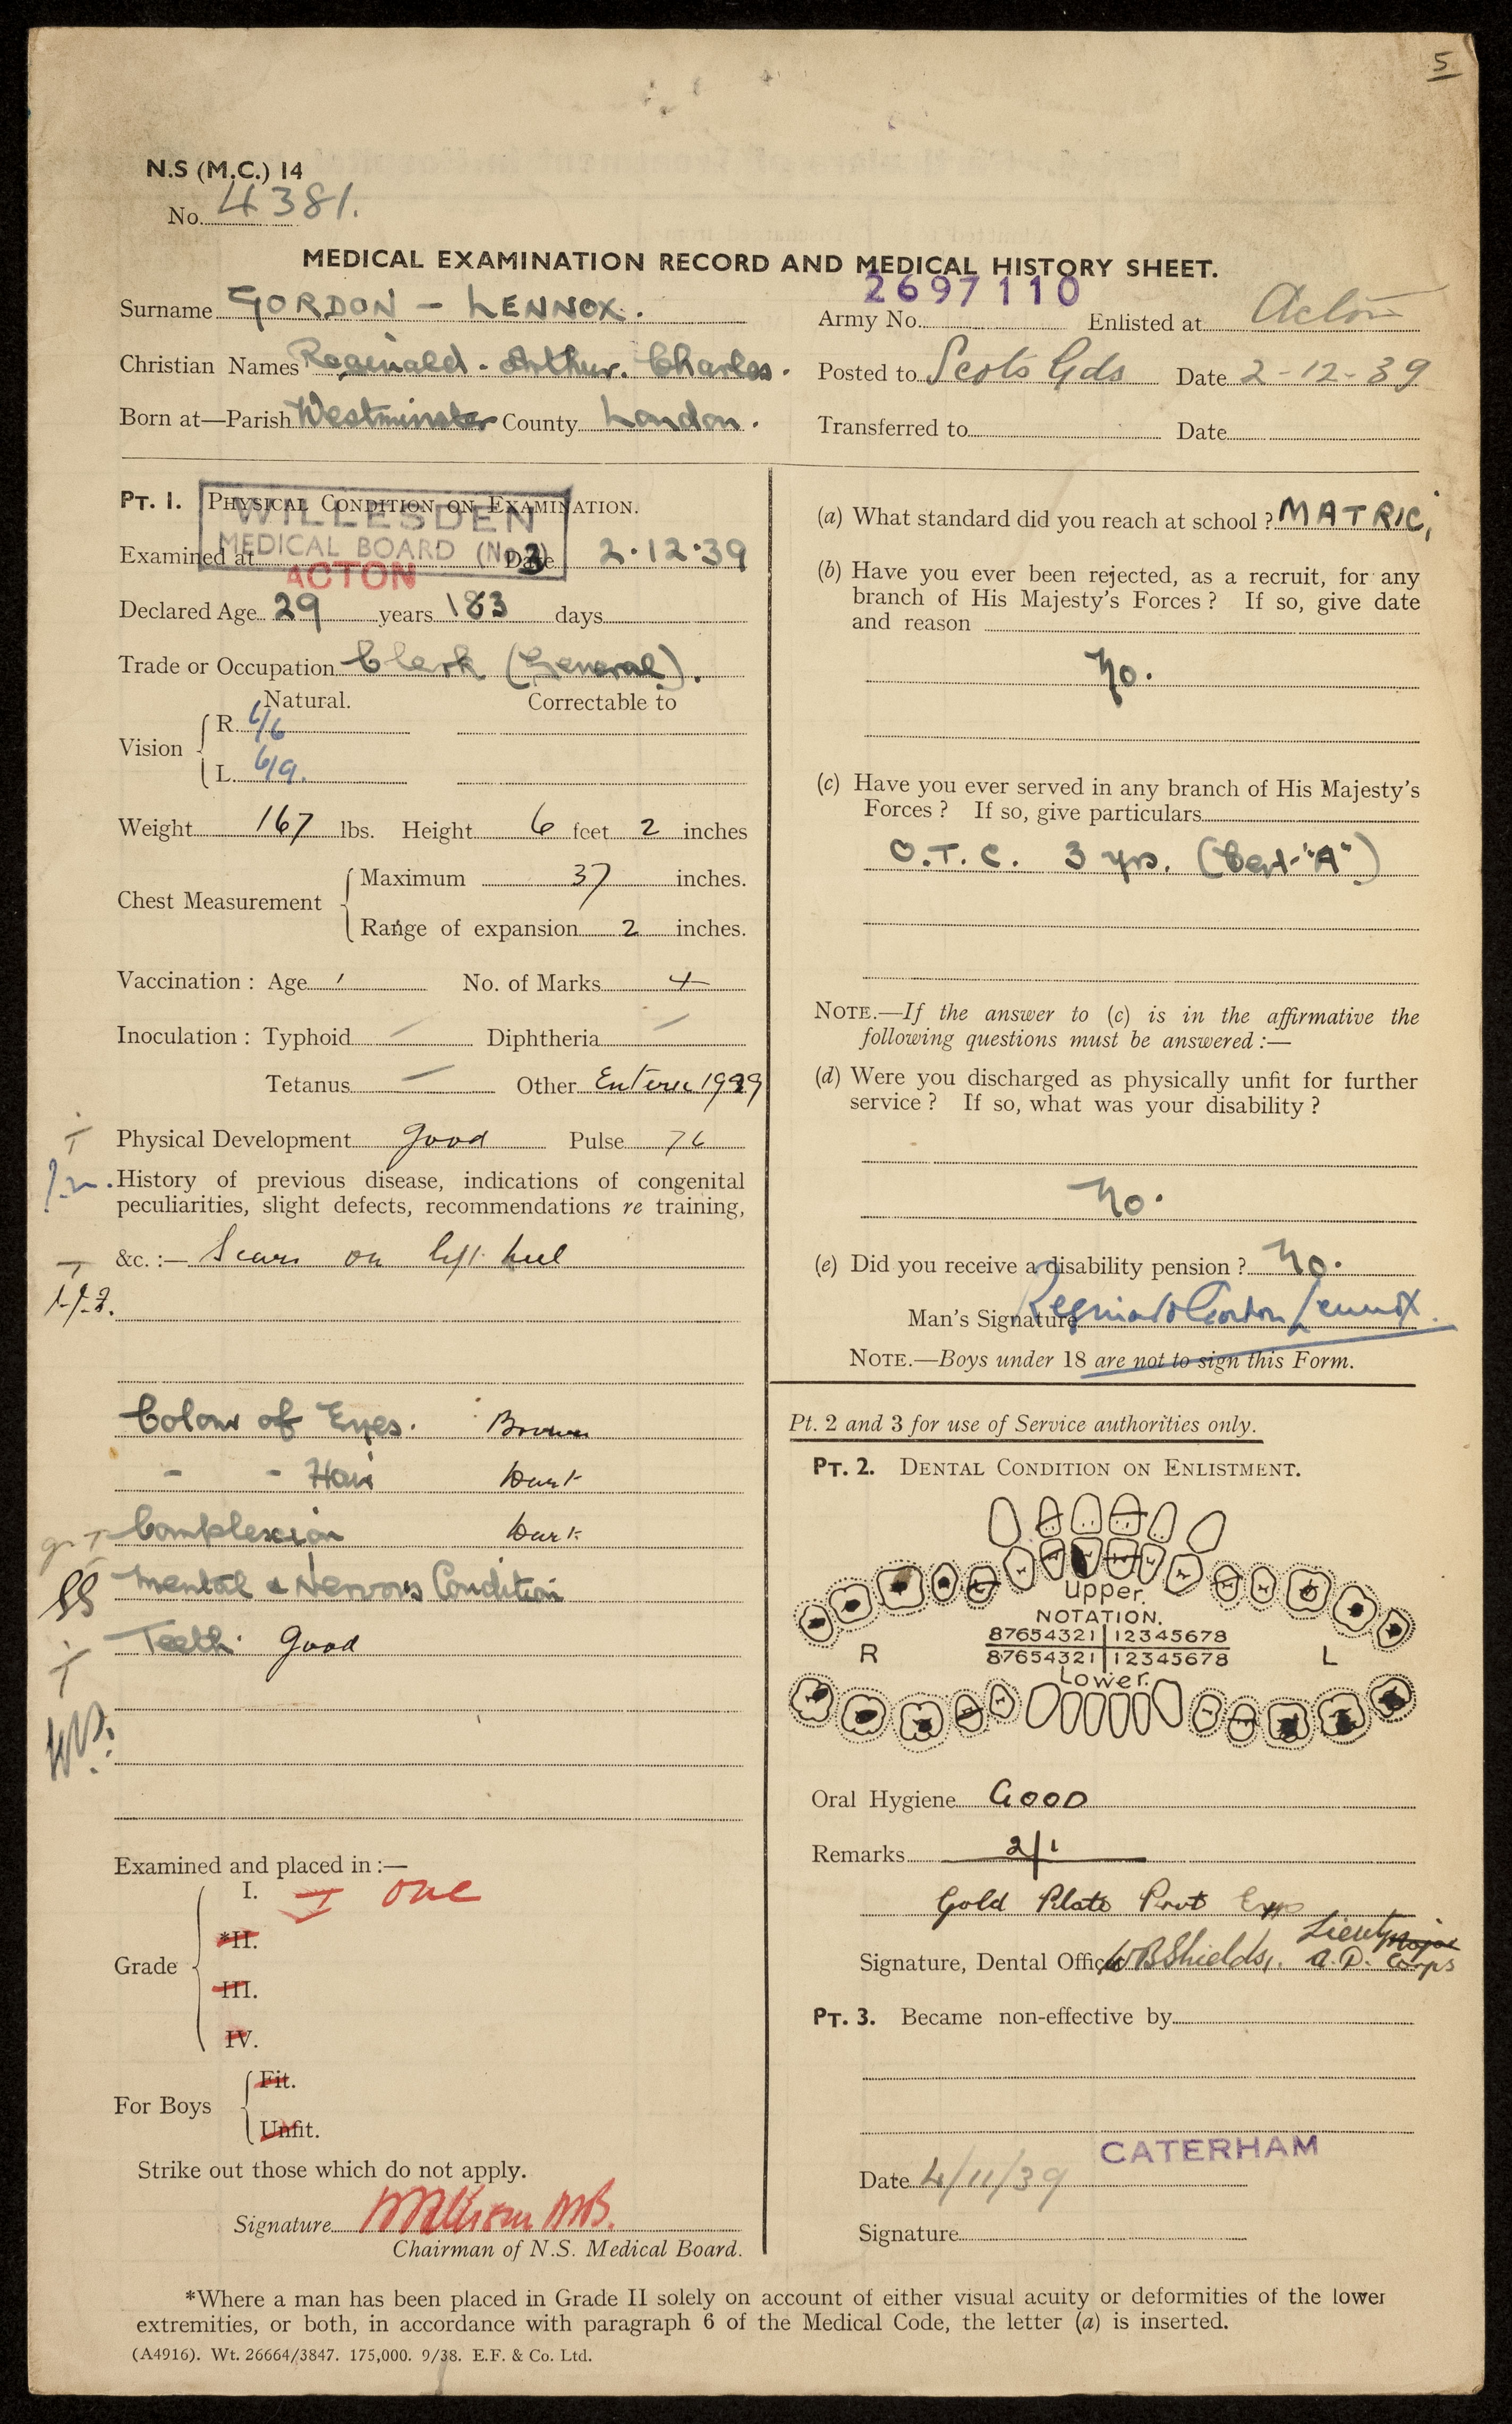 5
N.S (M.C.) 14
No. 4381.
MEDICAL EXAMINATION RECORD AND MEDICAL HISTORY SHEET.
2697110
Surname GORDON - LENNOX.
Army No. Enlisted at Acton
Christian Names Reginald. Arthur. Charles.
Posted to Scots Gds Date 2-12-39
Born at—Parish Westminster County London.
Transferred to Date
PT. 1. PHYSICAL CONDITION ON EXAMINATION.
WILLESDEN
MEDICAL BOARD (No. 3)
ACTON
Examined at Date 2.12.39
Declared Age 29 years 183 days
Trade or Occupation Clerk (General).
Natural. Correctable to
Vision
R. 6/6
L. 6/9.
Weight 167 lbs. Height 6 feet 2 inches
Chest Measurement
Maximum 37 inches.
Range of expansion 2 inches.
Vaccination : Age No. of Marks
Inoculation : Typhoid — Diphtheria —
Tetanus — Other
Physical Development good Pulse 76
History of previous disease, indications of congenital
peculiarities, slight defects, recommendations re training,
&c. :— Scars on left heel
Colour of Eyes. Brown
" " Hair Dark
Complexion Dark
Mental & Nervous Condition
Teeth. Good
Examined and placed in :—
Grade
I. I one
*II.
III.
IV.
For Boys
Fit.
Unfit.
Strike out those which do not apply.
Signature
Chairman of N.S. Medical Board.
(a) What standard did you reach at school ? MATRIC.
(b) Have you ever been rejected, as a recruit, for any
branch of His Majesty's Forces ? If so, give date
and reason
No.
(c) Have you ever served in any branch of His Majesty's
Forces ? If so, give particulars
O.T.C. 3 yrs. (Cert. "A")
NOTE.—If the answer to (c) is in the affirmative the
following questions must be answered :—
(d) Were you discharged as physically unfit for further
service ? If so, what was your disability ?
No.
(e) Did you receive a disability pension ? No.
Man's Signature Reginald Gordon Lennox.
NOTE.—Boys under 18 are not to sign this Form.
Pt. 2 and 3 for use of Service authorities only.
PT. 2. DENTAL CONDITION ON ENLISTMENT.
Upper.
NOTATION.
87654321 | 12345678
R L
87654321 | 12345678
Lower.
Oral Hygiene GOOD
Remarks 2/1
Gold Plate
Signature, Dental Officer W B Shields, Lieut Major
A.D. Corps
PT. 3. Became non-effective by
CATERHAM
Date 4/11/39
Signature
*Where a man has been placed in Grade II solely on account of either visual acuity or deformities of the lower
extremities, or both, in accordance with paragraph 6 of the Medical Code, the letter (a) is inserted.
(A4916). Wt. 26664/3847. 175,000. 9/38. E.F. & Co. Ltd.